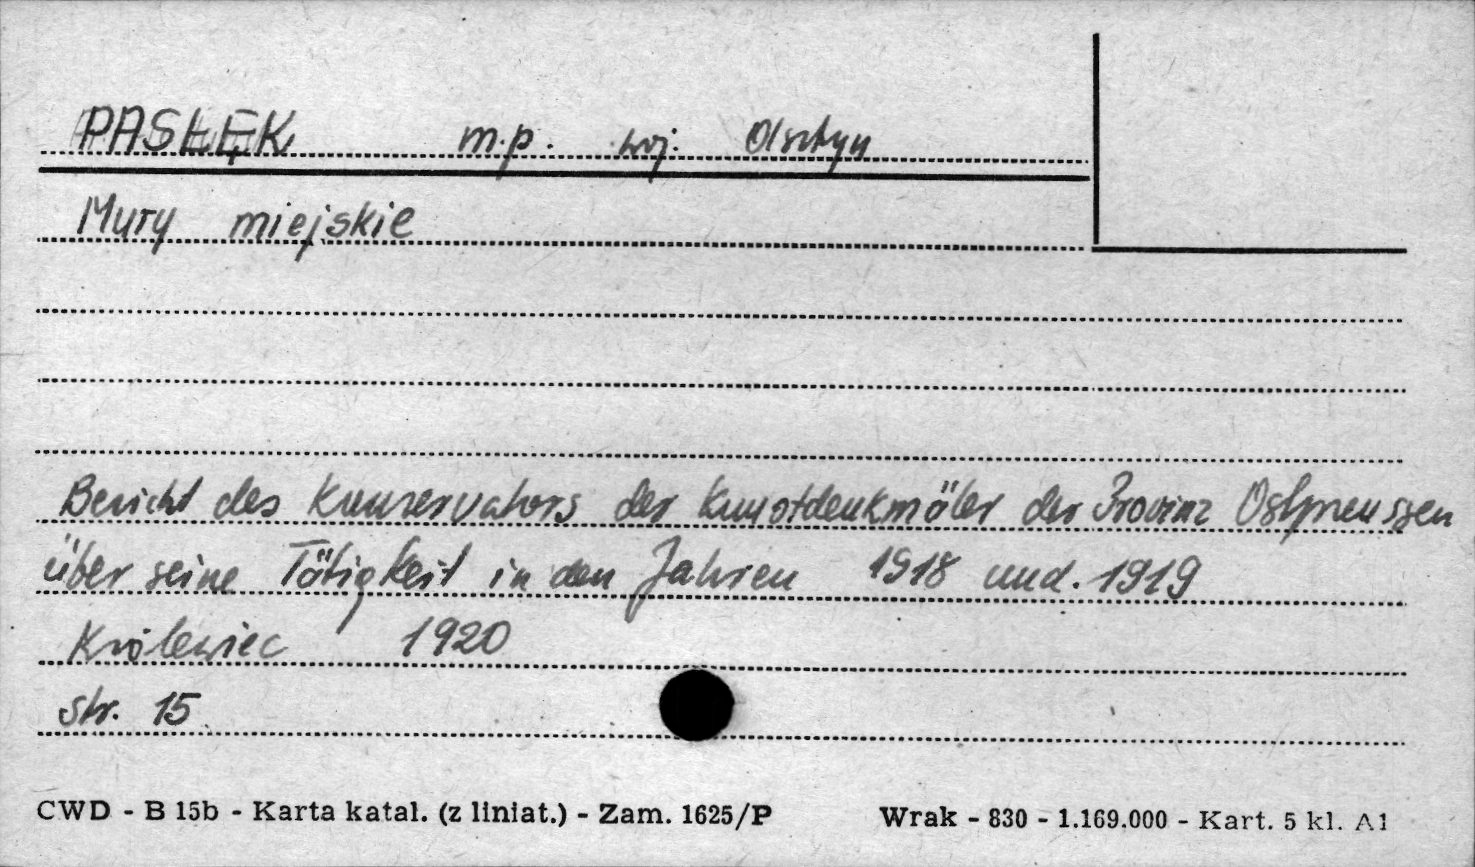 PASŁĘK m.p. woj. Olsztyn
Mury miejskie
Bericht des Konservators der Kunstdenkmäler der Provinz Ostpreussen
über seine Tätigkeit in den Jahren 1918 und. 1919
Królewiec 1920
str. 15
CWD - B 15b - Karta katal. (z liniat.) - Zam. 1625/P Wrak - 830 - 1.169.000 - Kart. 5 kl. A1